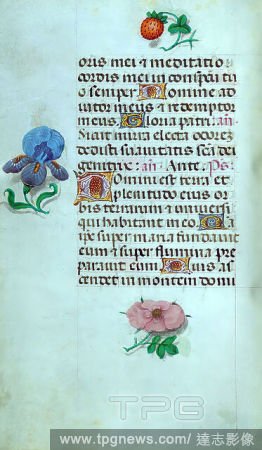 oris mei et meditatio
cordis mei in conspectu tu
o semper Domine ad
iutor meus et redemptor
meus Gloria patri añ
Sicut mirra electa odorem
dedisti suavitatis sca dei
genitrix añ Ante Ps
Domini est terra et
plenitudo eius or
bis terrarum et universi
qui habitant in eo Quia
ipse super maria fundavit
eum et super flumina pre
paravit eum Quis as
cendet in montem domi
TPG
www.tpgnews.com/ 達志影像